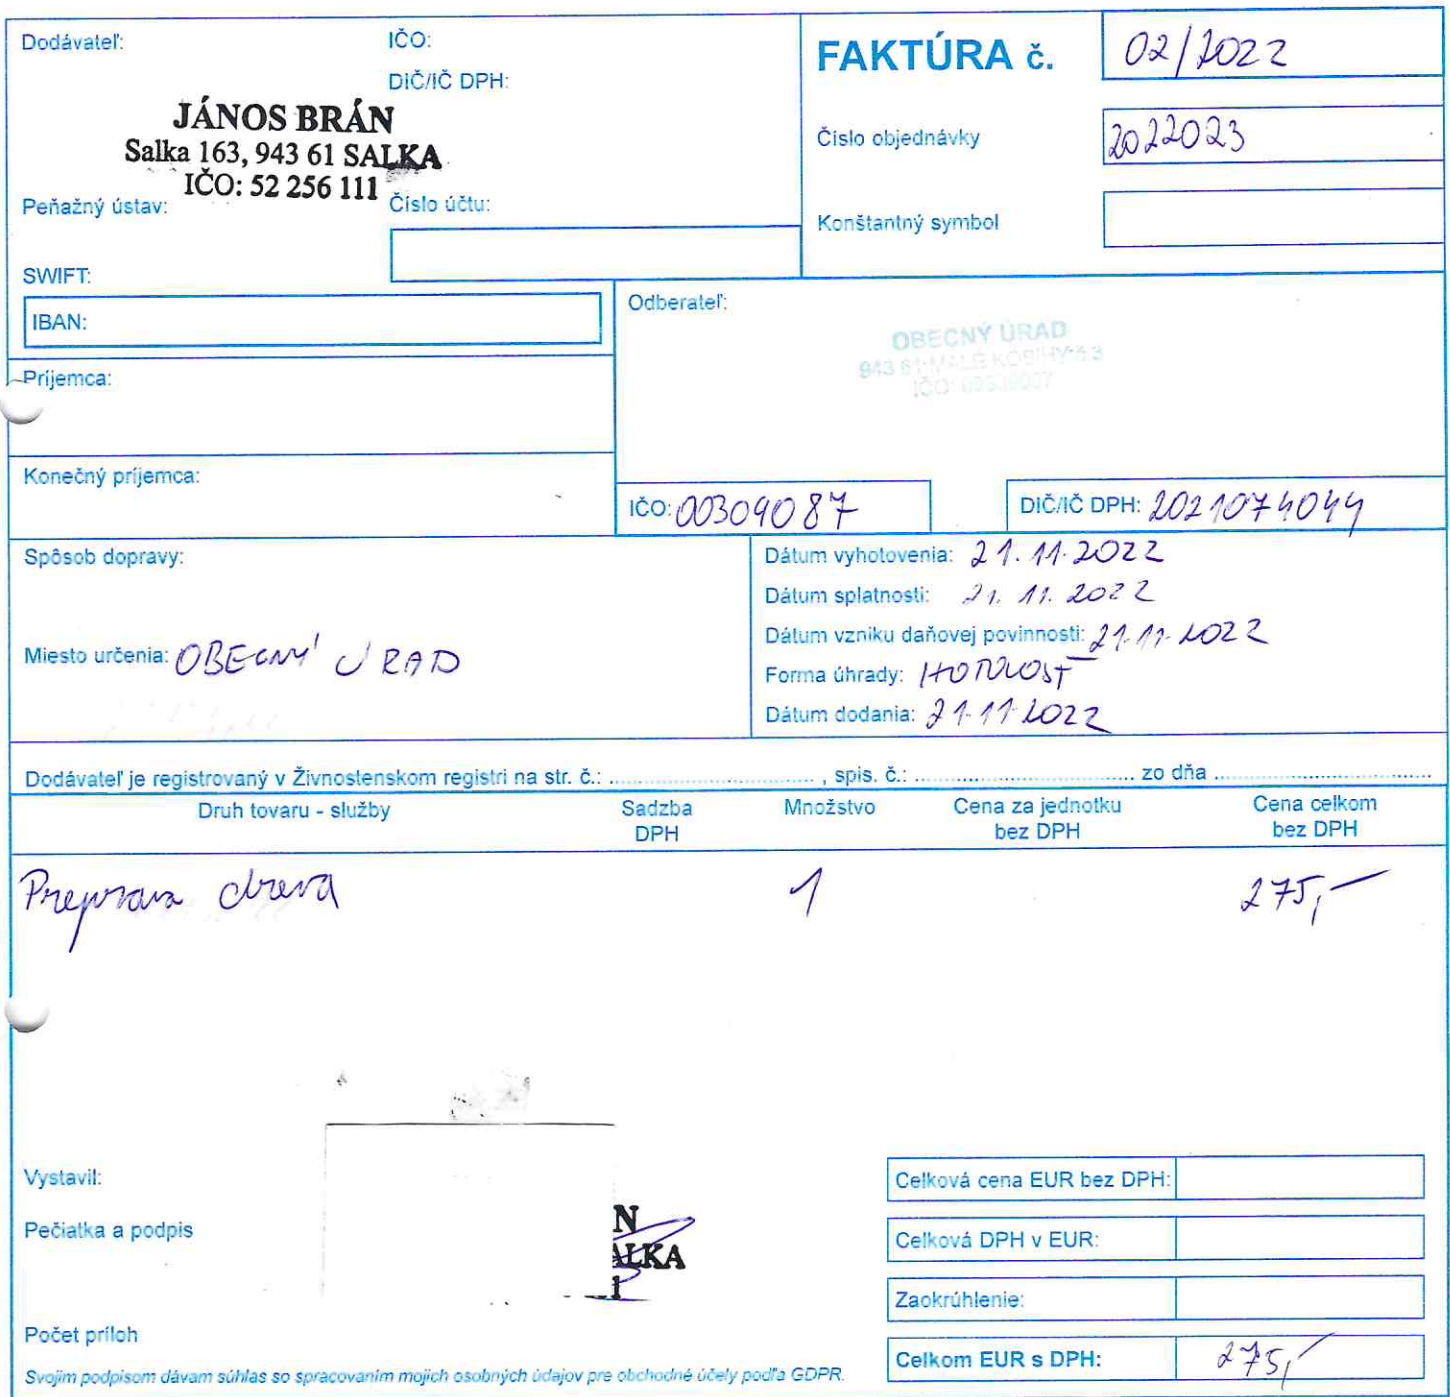 Dodávateľ:
IČO:
DIČ/IČ DPH:
JÁNOS BRÁN
Salka 163, 943 61 SALKA
IČO: 52 256 111
Peňažný ústav:
Číslo účtu:
SWIFT:
IBAN:
FAKTÚRA č. 02/2022
Číslo objednávky 2022023
Konštantný symbol
Príjemca:
Konečný príjemca:
Odberateľ:
OBECNÝ ÚRAD
943 61 MALÉ KOSIHY č.3
IČO:
IČO: 00309087
DIČ/IČ DPH: 2021074044
Spôsob dopravy:
Miesto určenia: OBECNÝ ÚRAD
Dátum vyhotovenia: 21.11.2022
Dátum splatnosti: 21.11.2022
Dátum vzniku daňovej povinnosti: 21.11.2022
Forma úhrady: HOTOVOSŤ
Dátum dodania: 21.11.2022
Dodávateľ je registrovaný v Živnostenskom registri na str. č.: .................... , spis. č.: .................... zo dňa ....................
Druh tovaru - služby Sadzba DPH Množstvo Cena za jednotku bez DPH Cena celkom bez DPH
Preprava dreva 1 275,-
Vystavil:
Pečiatka a podpis
N
ALKA
1
Počet príloh
Svojim podpisom dávam súhlas so spracovaním mojich osobných údajov pre obchodné účely podľa GDPR.
Celková cena EUR bez DPH:
Celková DPH v EUR:
Zaokrúhlenie:
Celkom EUR s DPH: 275,-